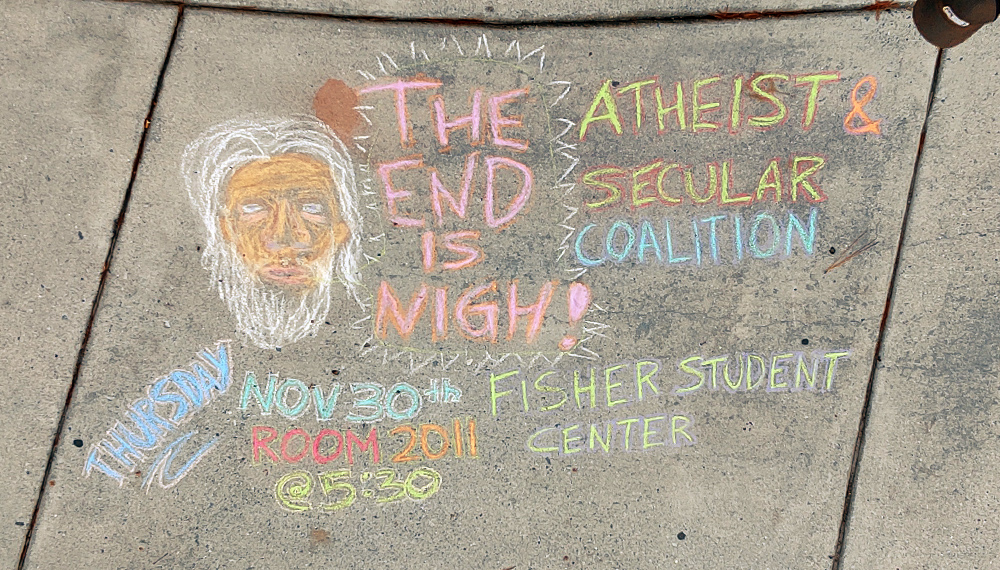 THE
END
IS
NIGH!
ATHEIST &
SECULAR
COALITION
THURSDAY
NOV 30th
ROOM 2011
@5:30
FISHER STUDENT
CENTER